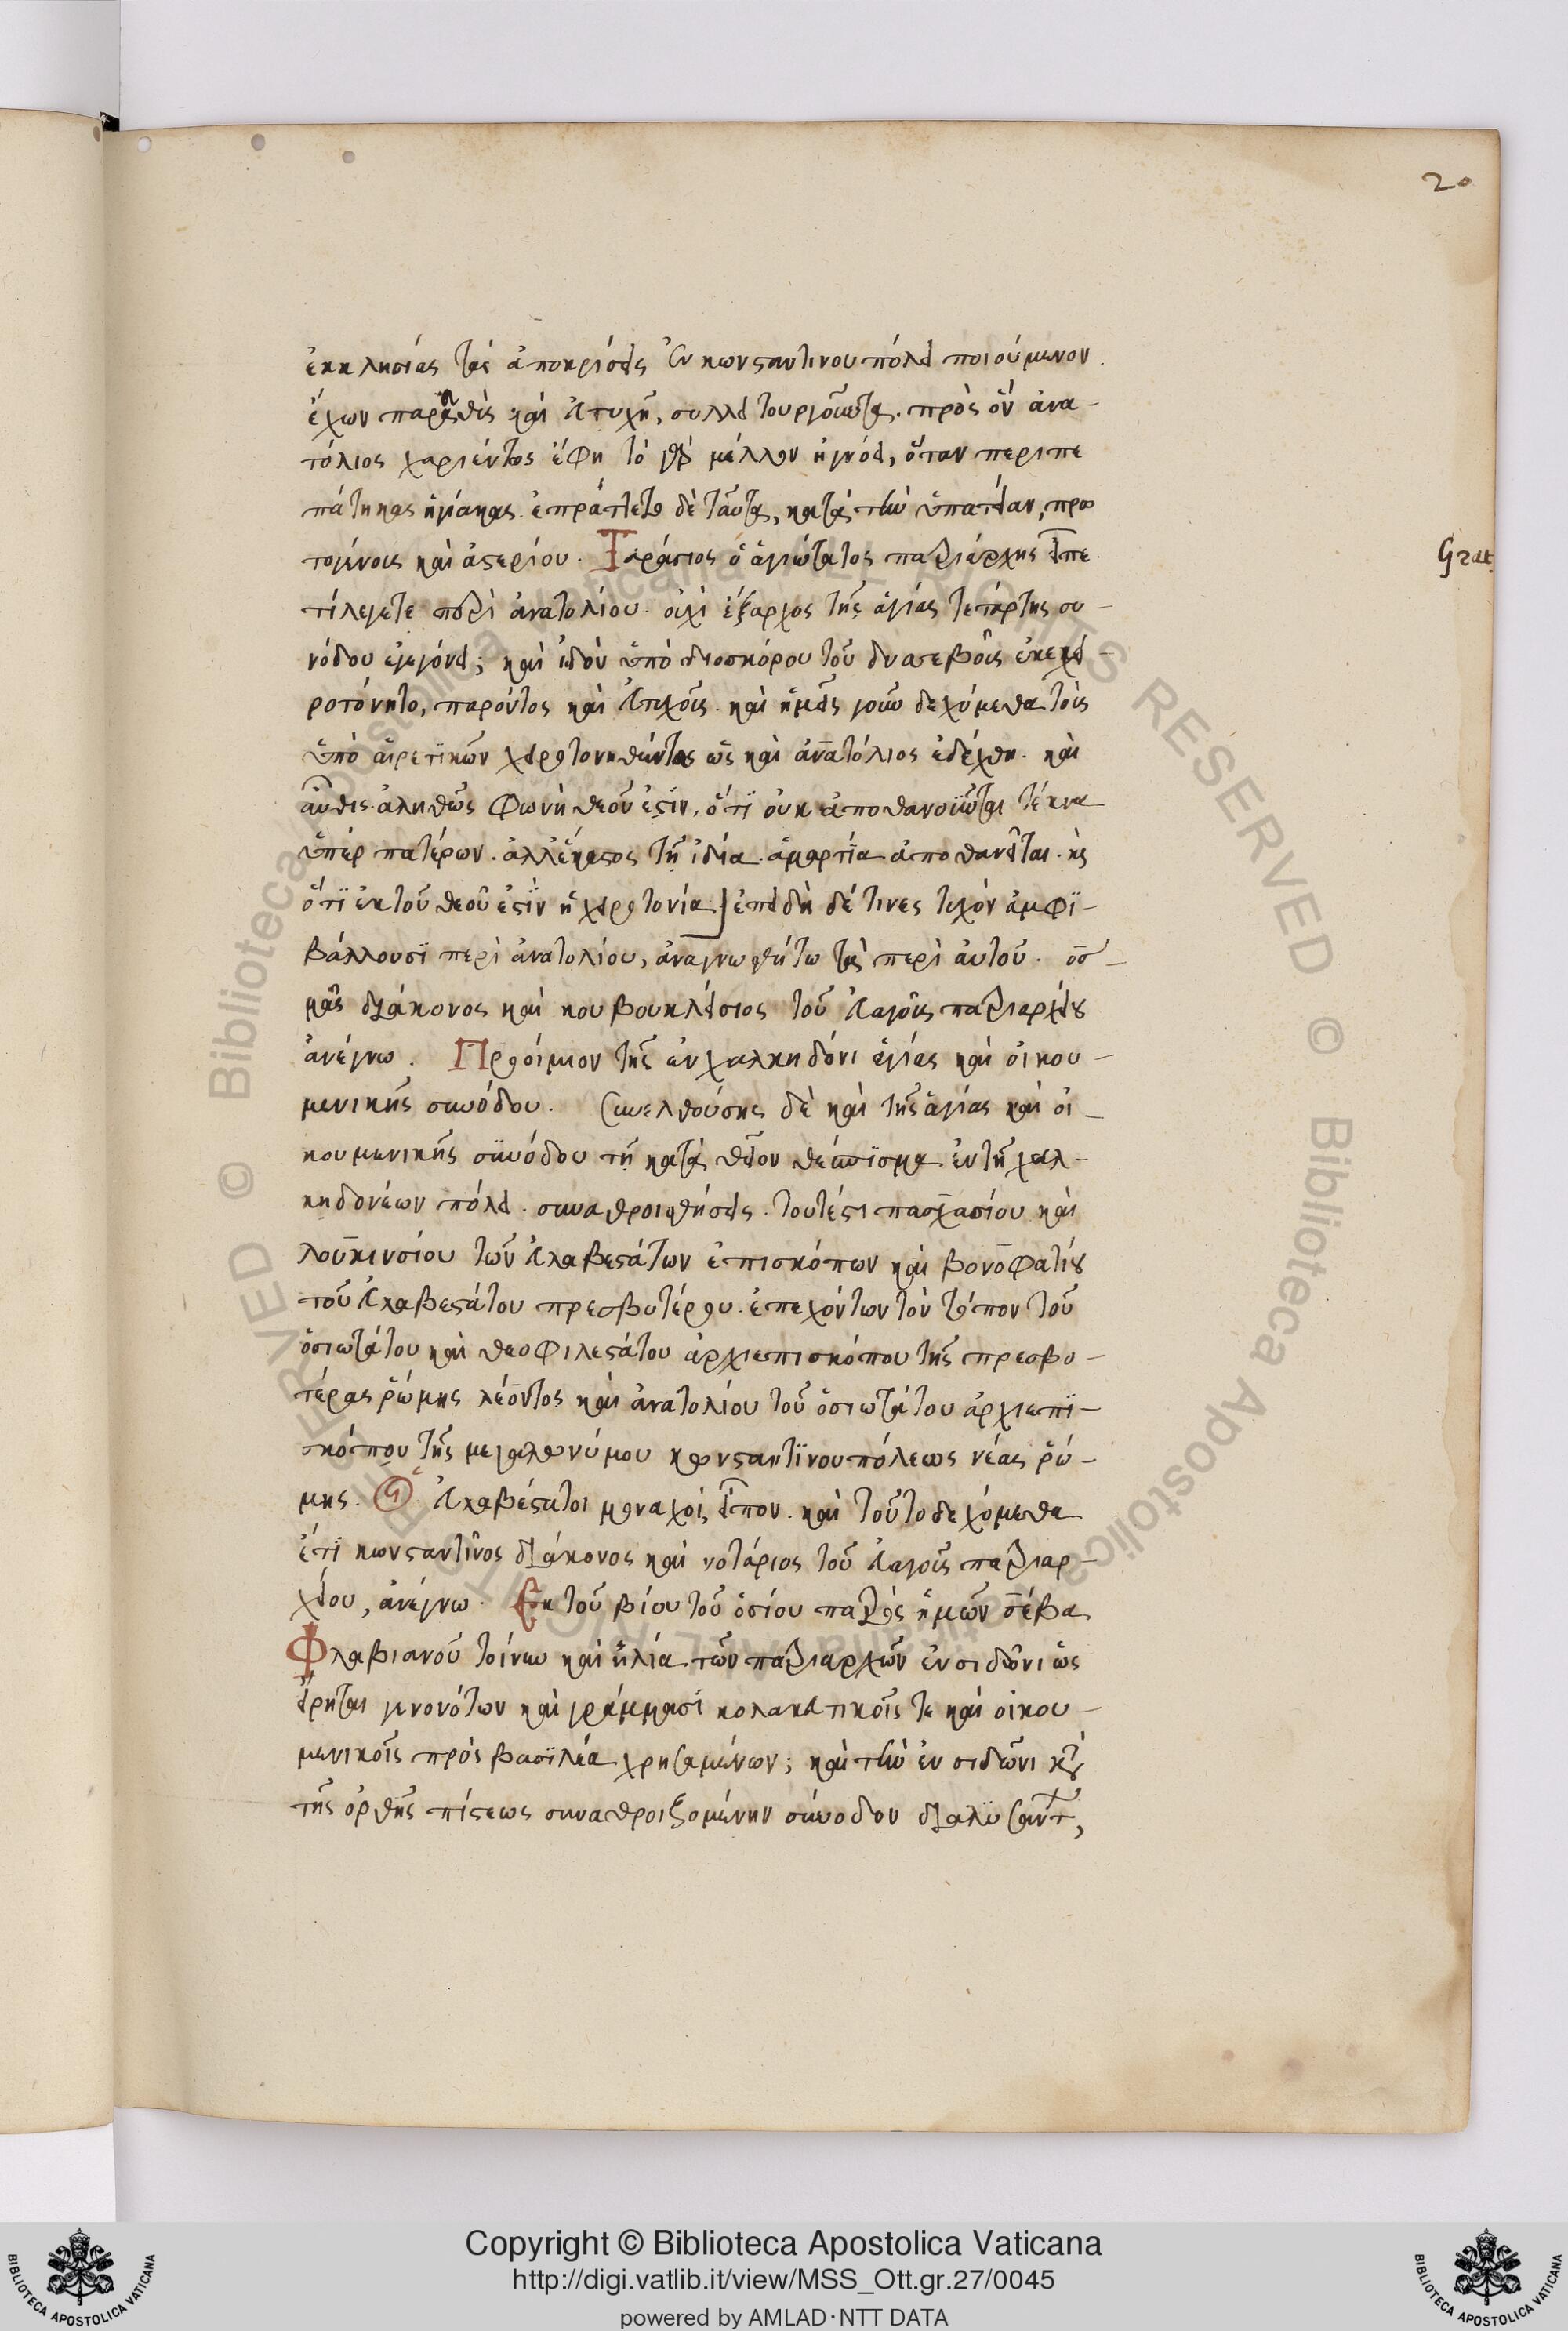 20
ἐκκλησίας τὰς ἀποκρίσεις ἐν κωνσταντινουπόλει ποιούμενον.
ἔχων παραυθις καὶ εὐτυχῆ, συλλειτουργοῦντα. πρὸς ὃν ἀνα-
τόλιος χαριέντως ἔφη τὸ μέλλον ἠγνόει, ὅταν περιπε
πάτηκας ἡγίακας. ἐπράττετο δὲ ταῦτα, κατὰ τὴν ὑπατείαν, πρω
τογένους καὶ ἀστερίου. Ταράσιος ὁ ἁγιώτατος πατριάρχης εἶπε.
τί λέγετε περὶ ἀνατολίου. οὐχὶ ἔξαρχος τῆς ἁγίας τετάρτης συ-
νόδου ἐγεγόνει; καὶ ἰδοὺ ὑπὸ διοσκόρου τοῦ δυσσεβοῦς ἐκεχει-
ροτόνητο, παρόντος καὶ εὐτυχοῦς. καὶ ἡμεῖς γοῦν δεχόμεθα τοὺς
ὑπὸ αἱρετικῶν χειροτονηθέντας ὡς καὶ ἀνατόλιος ἐδέχθη. καὶ
αὖθις ἀληθῶς φωνὴ θεοῦ ἐστίν, ὅτι οὐκ ἀποθανοῦνται τέκνα
ὑπὲρ πατέρων. ἀλλ' ἕκαστος τῇ ἰδία ἁμαρτία ἀποθανεῖται. κς
ὅτι ἐκ τοῦ θεοῦ ἐστὶν ἡ χειροτονία] ἐπειδὴ δέ τινες τυχὸν ἀμφι-
βάλλουσι περὶ ἀνατολίου, ἀναγνωσθήτω τὰ περὶ αὐτοῦ.
διάκονος καὶ κουβουκλείσιος τοῦ εὐαγοῦς πατριαρχείου
ἀνέγνω. Προοίμιον τῆς ἐν χαλκηδόνι ἁγίας καὶ οἰκου-
μενικῆς συνόδου. Συνελθούσης δὲ καὶ τῆς ἁγίας καὶ οἰ-
κουμενικῆς συνόδου τῆ κατὰ θεῖον θέσπισμα ἐν τῆ χαλ-
κηδονέων πόλει. συναθροισθήσεις. τουτέστι πασχασίου καὶ
λουκινσίου τῶν εὐλαβεστάτων ἐπισκόπων καὶ βονοφατίου
τοῦ εὐλαβεστάτου πρεσβυτέρου. ἐπεχόντων τὸν τόπον τοῦ
ὁσιωτάτου καὶ θεοφιλεστάτου ἀρχιεπισκόπου τῆς πρεσβυ-
τέρας ῥώμης λέοντος καὶ ἀνατολίου τοῦ ὁσιωτάτου ἀρχιεπι-
σκόπου τῆς μεγαλωνύμου κωνσταντινουπόλεως νέας ῥώ-
μης. Οἱ εὐλαβέστατοι μοναχοὶ εἶπον. καὶ τοῦτο δεχόμεθα
ἔτι κωνσταντῖνος διάκονος καὶ νοτάριος τοῦ εὐαγοῦς πατριαρ-
χείου, ἀνέγνω. Ἐκ τοῦ βίου τοῦ ὁσίου πατρὸς ἡμῶν σάβα
Φλαβιανοῦ τοίνυν καὶ ἡλία τῶν πατριαρχῶν ἐν σιδῶνι ὡς
εἴρηται γεγονότων καὶ γράμμασι κολακευτικοῖς τε καὶ οἰκου-
μενικοῖς πρὸς βασιλέα χρησαμένων; καὶ τὴν ἐν σιδῶνι κατὰ
τῆς ὀρθῆς πίστεως συναθροιζομένην σύνοδον διαλυσάντων,
Grat
Copyright © Biblioteca Apostolica Vaticana
http://digi.vatlib.it/view/MSS_Ott.gr.27/0045
powered by AMLAD·NTT DATA